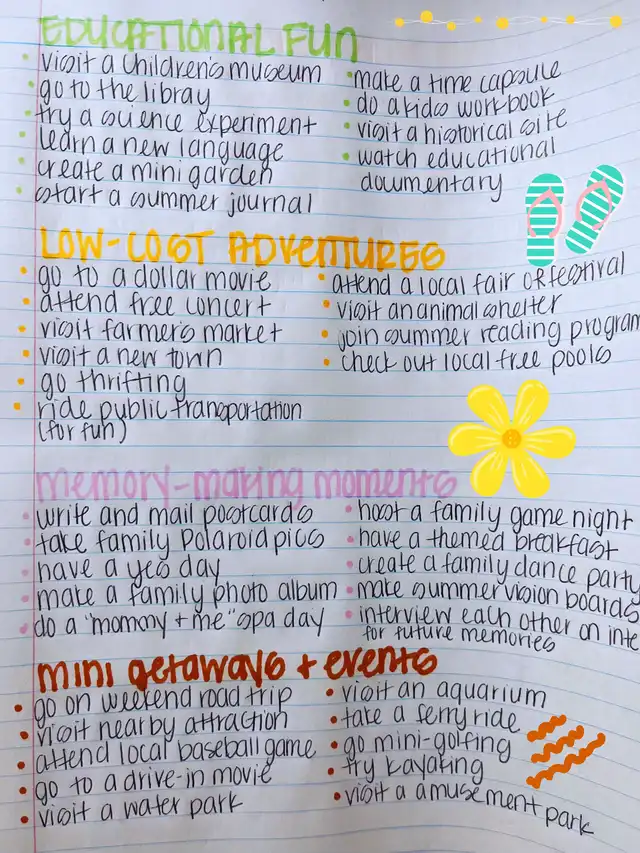 EDUCATIONAL FUN
visit a children's museum
go to the libray
try a science experiment
learn a new language
create a mini garden
start a summer journal
make a time capsule
do a kids workbook
visit a historical site
watch educational
documentary
LOW-COST ADVENTURES
go to a dollar movie
attend free concert
visit farmer's market
visit a new town
go thrifting
ride public transportation
(for fun)
attend a local fair or festival
visit an animal shelter
join summer reading program
check out local free pools
memory-making moments
write and mail postcards
take family Polaroid pics
have a yes day
make a family photo album
do a "mommy + me" spa day
host a family game night
have a themed breakfast
create a family dance party
make summer vision boards
interview each other on
for future memories
mini getaways + events
go on weekend road trip
visit nearby attraction
attend local baseball game
go to a drive-in movie
visit a water park
visit an aquarium
take a ferry ride
go mini-golfing
try kayaking
visit a amusement park